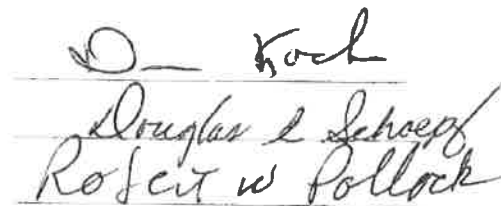 Koch
Douglas E Schoepf
Robert W Pollock